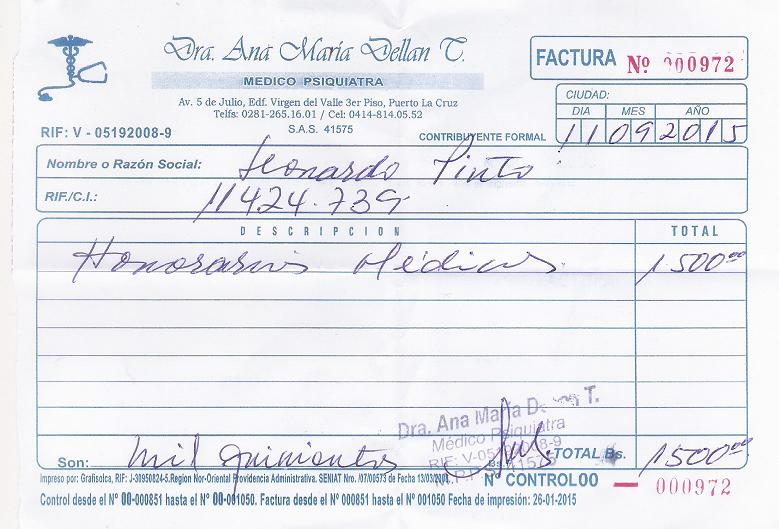 Dra. Ana María Dellan T.
MEDICO PSIQUIATRA
Av. 5 de Julio, Edf. Virgen del Valle 3er Piso, Puerto La Cruz
Telfs: 0281-265.16.01 / Cel: 0414-814.05.52
S.A.S. 41575
RIF: V - 05192008-9
CONTRIBUYENTE FORMAL
FACTURA Nº 000972
CIUDAD:
DIA MES AÑO
11 09 2015
Nombre o Razón Social: Leonardo Pinto
RIF./C.I.: 11424.739
DESCRIPCION TOTAL
Honorarios Médicos 1.500,00
Dra. Ana María Dellan T.
Médico Psiquiatra
RIF: V-05192008-9
M.P.P.S. 41575
Son: Mil quinientos TOTAL Bs. 1500,00
Impreso por: Grafisolca, RIF: J-30950824-5.Region Nor-Oriental Providencia Administrativa. SENIAT Nro. /07/00573 de Fecha 13/03/2008.
Nº CONTROL 00 — 000972
Control desde el Nº 00-000851 hasta el Nº 00-001050. Factura desde Nº 000851 hasta el Nº 001050 Fecha de impresión: 26-01-2015